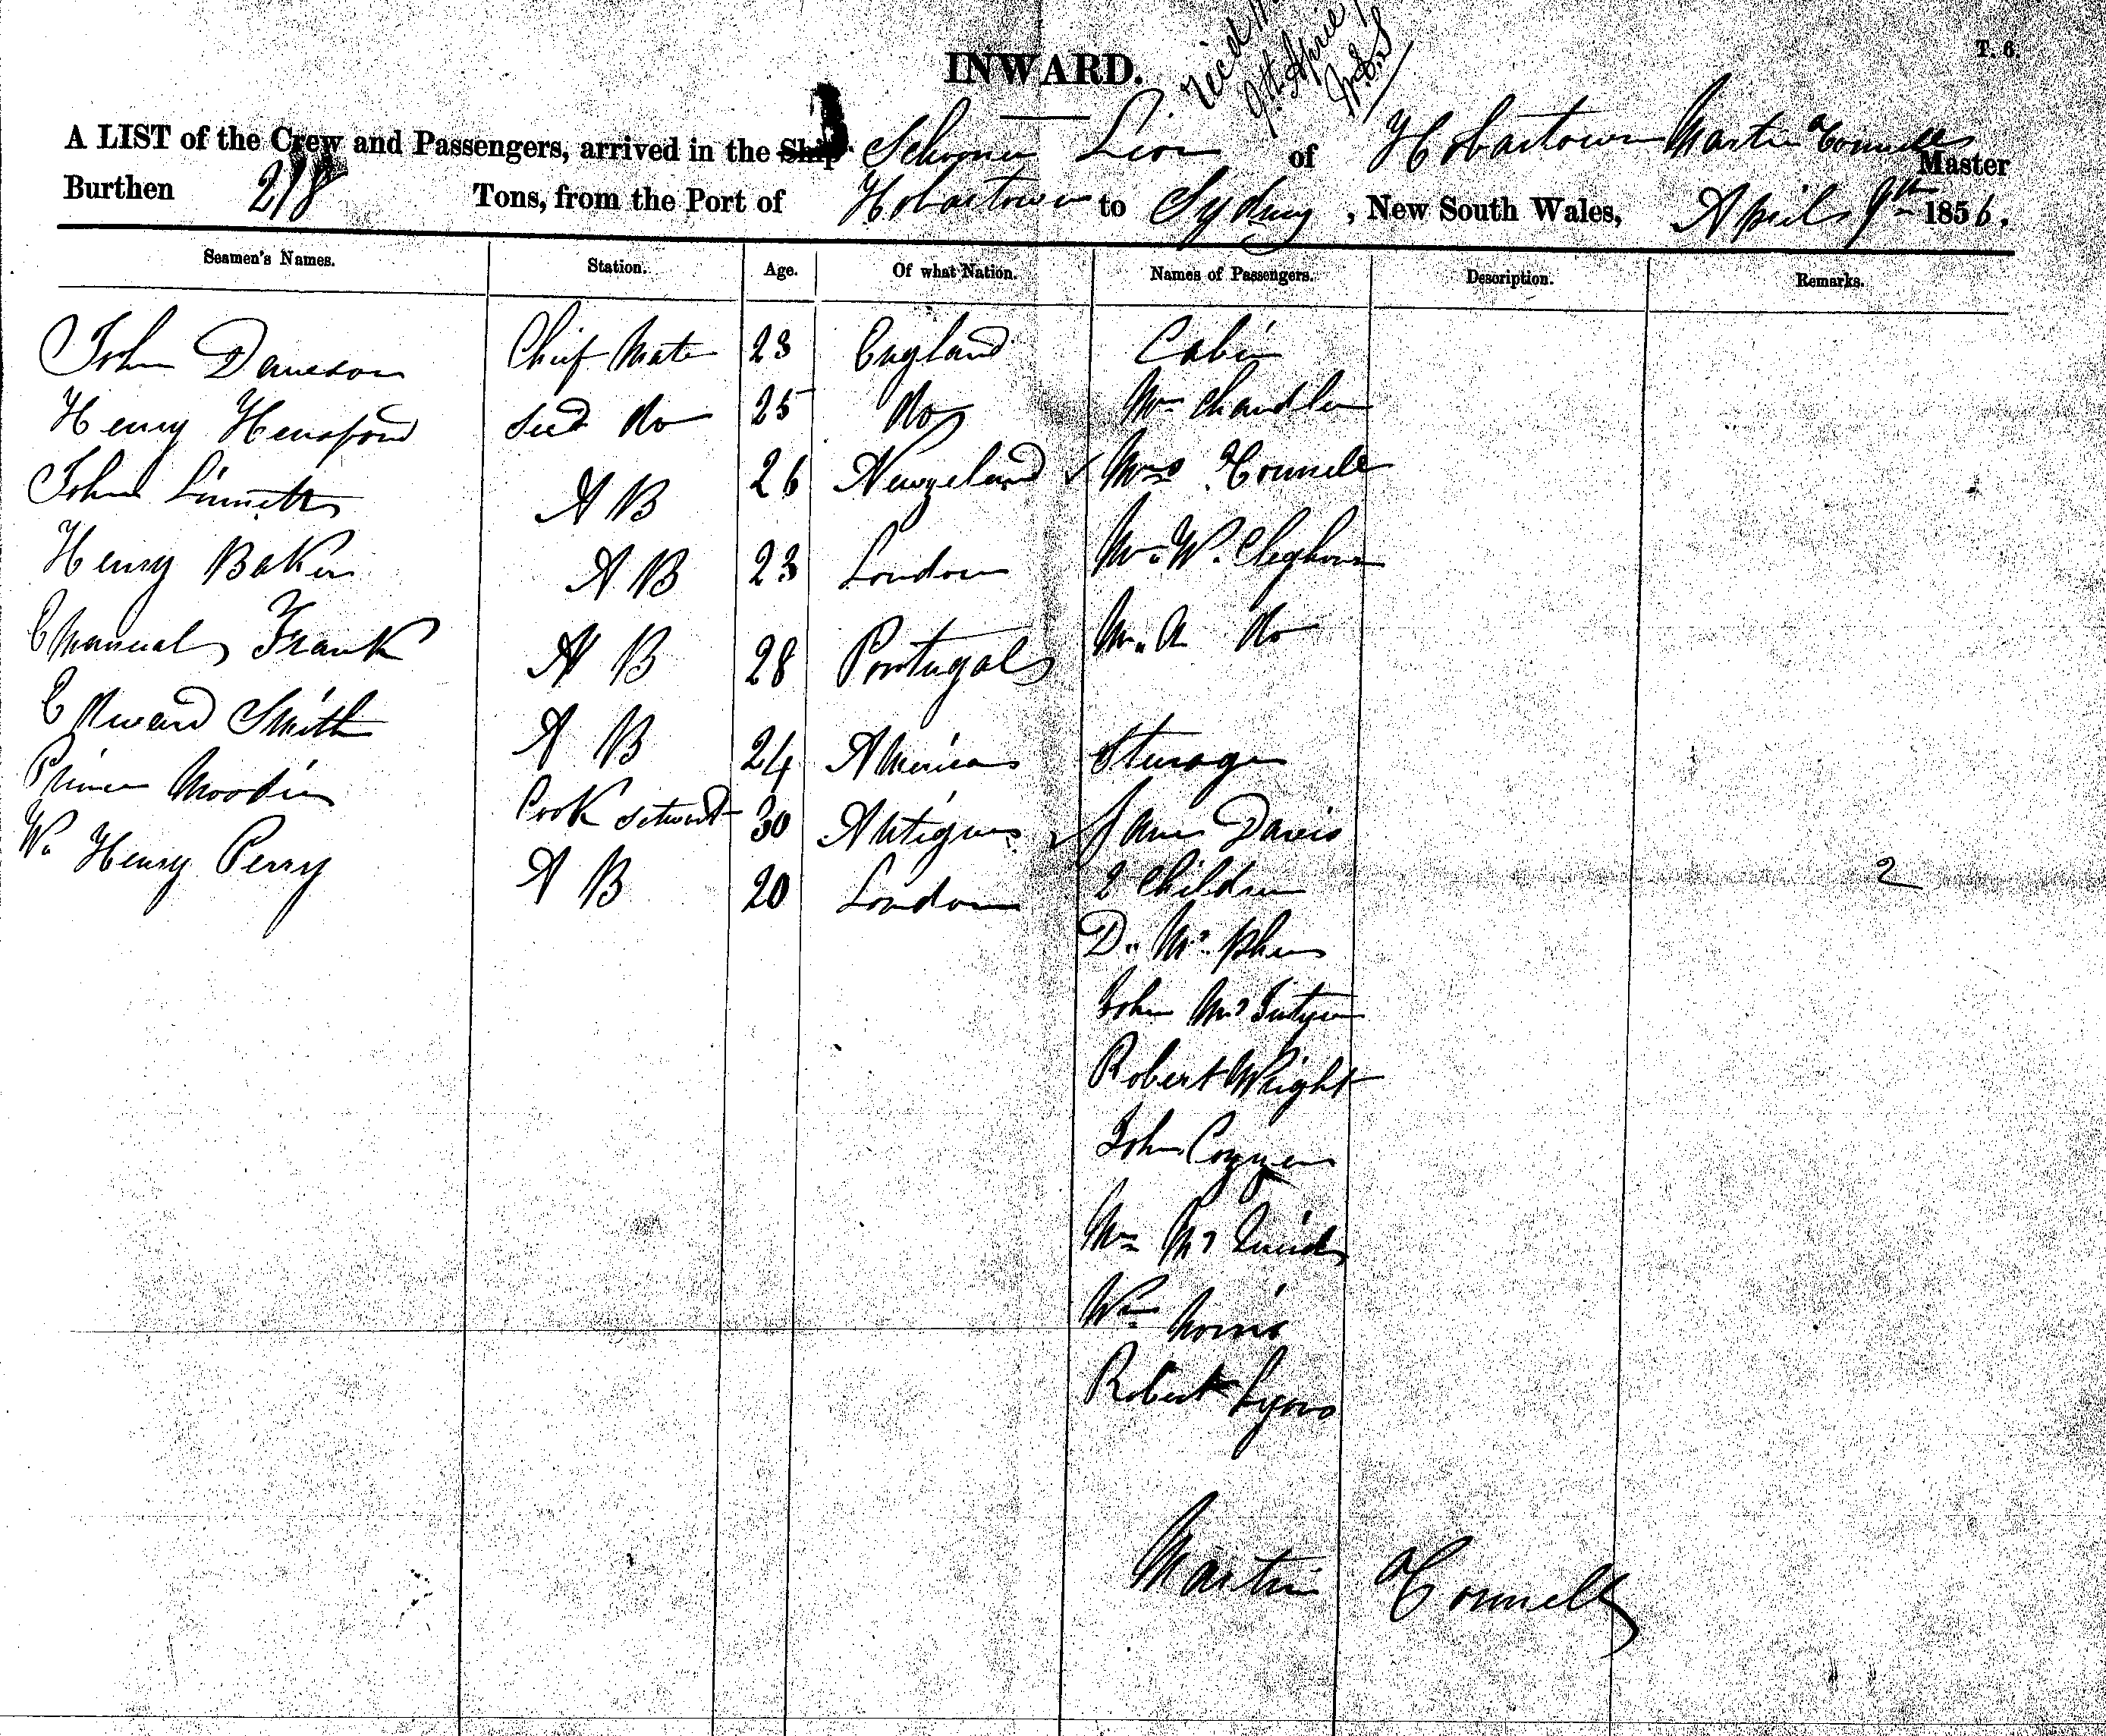 T. 6.
INWARD.
9th April
A LIST of the Crew and Passengers, arrived in the Ship Schooner Lion of Hobartown Martin Connell Master
Burthen 218 Tons, from the Port of Hobartown to Sydney, New South Wales, April 9th 1856.
Seamen's Names. Station. Age. Of what Nation. Names of Passengers. Description. Remarks.
John Chief Mate 23 England Cabin
Henry do 25 do Chandler
John A B 26 Newzeland Mrs Connell
Henry Baker A B 23 London Mr. W. Cleghorn
Emanual Frank A B 28 Portugal Mr. do
Edward Smith A B 24 Steerage
Cook 30 Davis
Wm Henry Perry A B 20 London 2 Children 2
D. Mc
John McIntyre
Robert Wright
John
Mrs
Wm Morris
Robert Lyons
Martin Connell